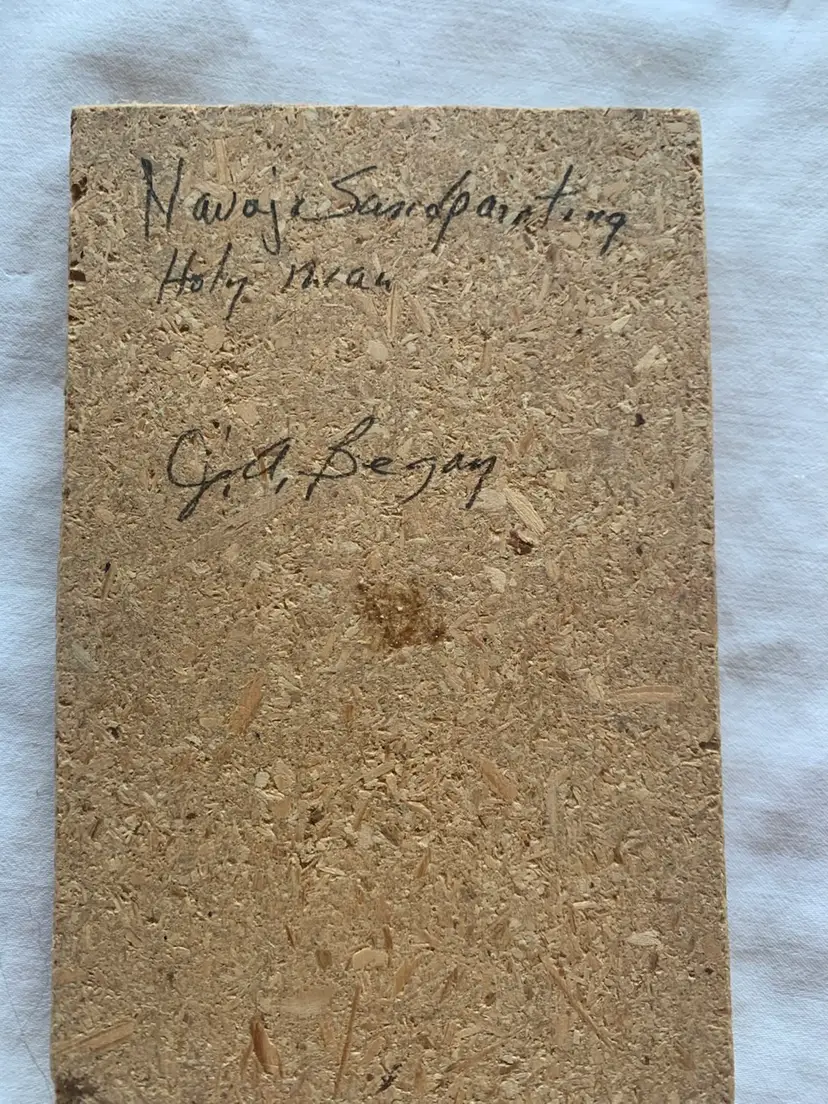 Navajo Sandpainting
Holy man
J.A. Begay